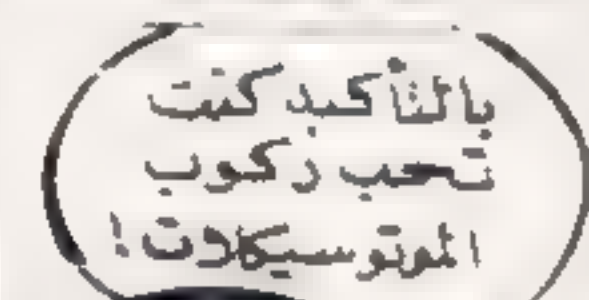 بالتأكيد كنت
تحب ركوب
الموتوسيكلات!